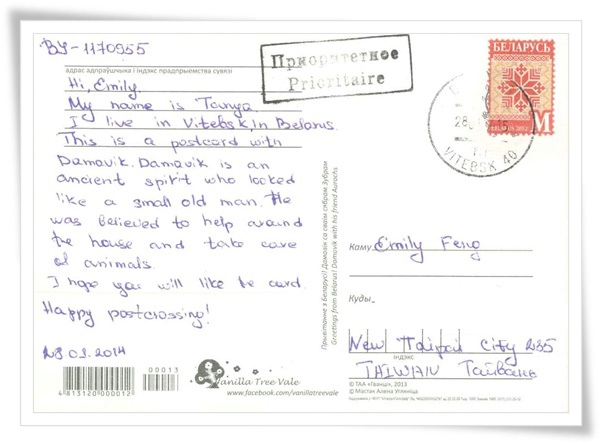 BY-1170955
адрас адпраўшчыка і індэкс прадпрыемства сувязі
Hi, Emily.
My name is Tanya.
I live in Vitebsk, in Belarus.
This is a postcard with
Damavik. Damavik is an
ancient spirit who looked
like a small old man. He
was believed to help around
the house and take care
of animals.
I hope you will like the card.
Happy postcrossing!
28.01.2014
00013
4813120000012
Vanilla Tree Vale
www.facebook.com/vanillatreevale
Прывітанне з Беларусі! Дамавік са сваім сябрам Зубрам
Greetings from Belarus! Damavik with his friend Aurochs
Приоритетное
Prioritaire
БЕЛАРУСЬ
BELARUS 2012
M
28
15
VITEBSK 40
Каму Emily Feng
Куды
New Taipei City 235
індэкс
TAIWAN Тайвань
© ТАА «Гванці», 2013
© Мастак Алена Угляніца